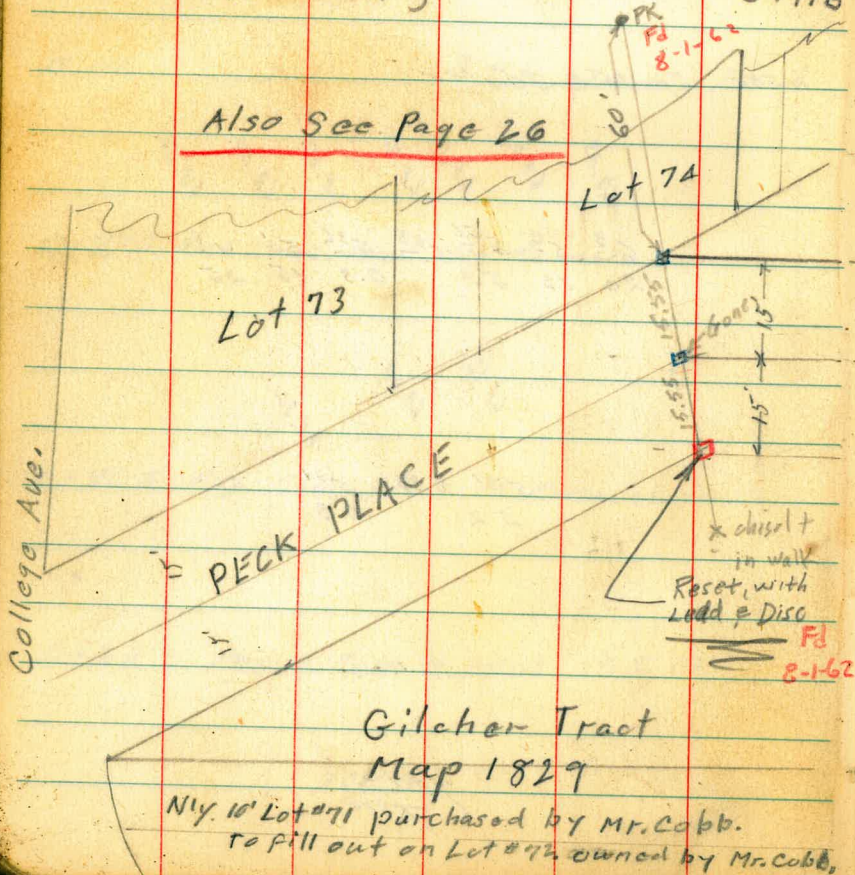 PK
Fd
8-1-62
Also See Page 26
60'
Lot 74
Lot 73
15.55
Gone
15'
15.55
15'
College Ave.
PECK PLACE
15'
15'
x chisel +
in walk
Reset, with
Lead & Disc
Fd
8-1-62
Gilcher Tract
Map 1829
N'ly. 10' Lot #71 purchased by Mr. Cobb.
To fill out on Lot #72 owned by Mr. Cobb.